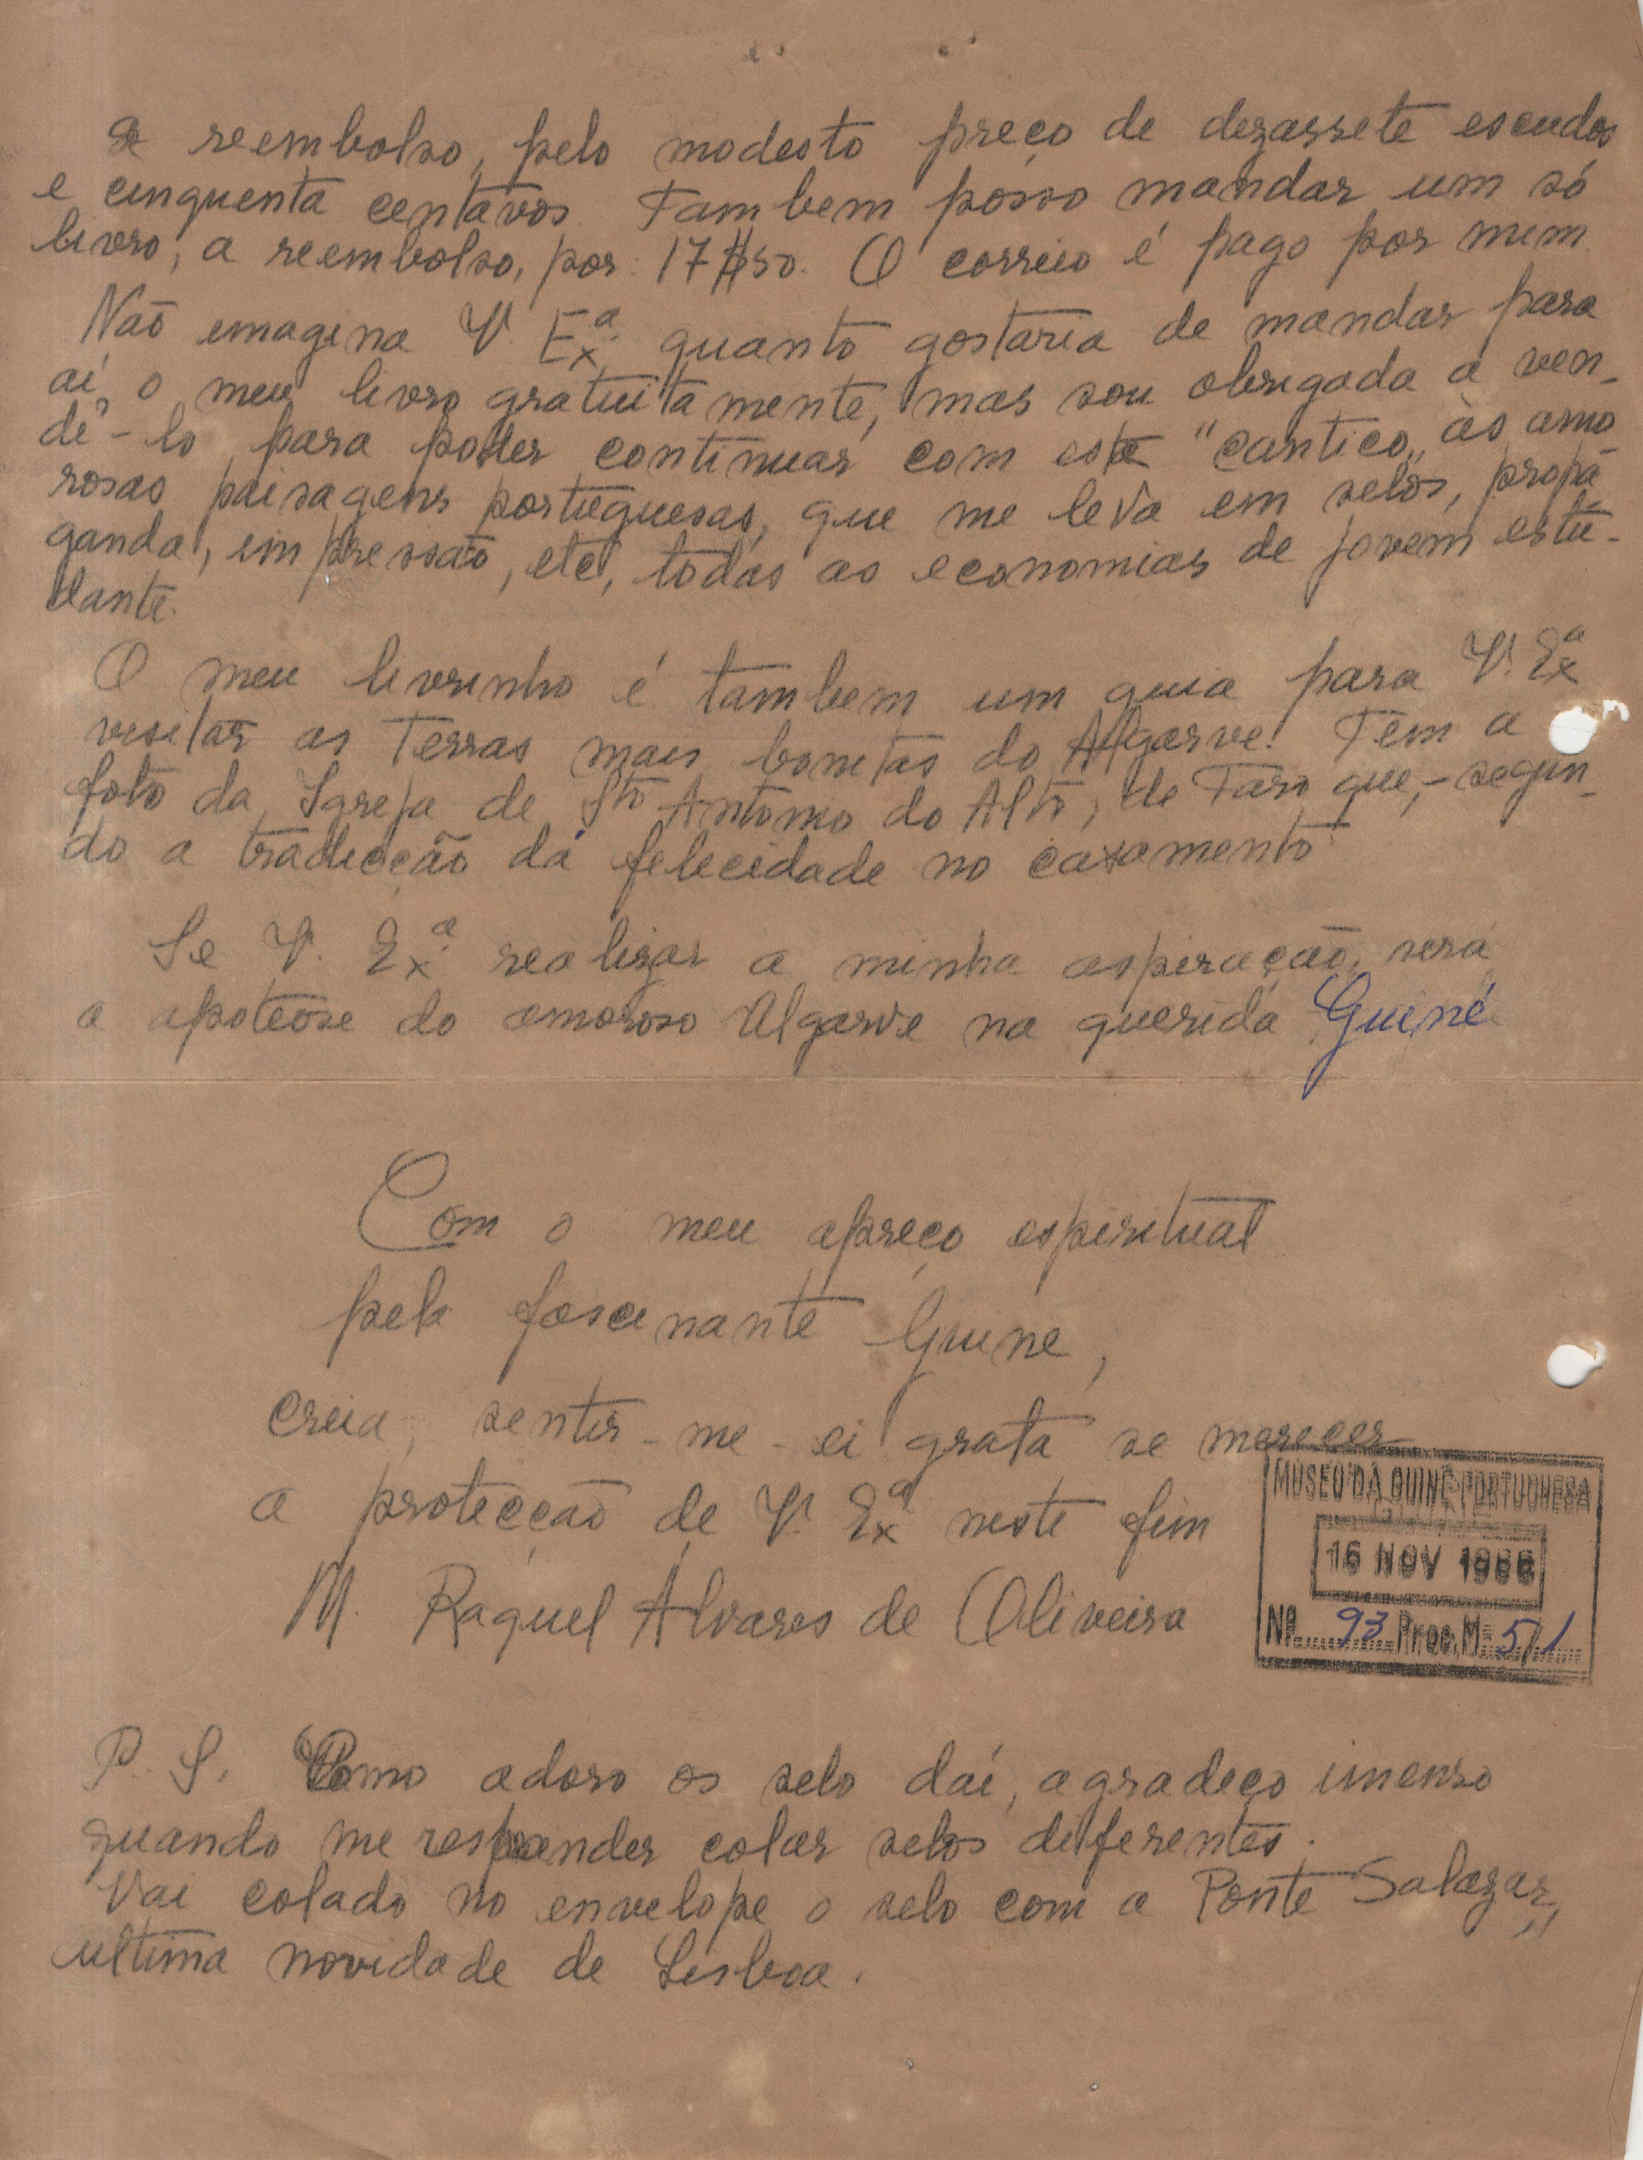 a reembolso, pelo modesto preço de dezassete escudos
e cinquenta centavos. Tambem posso mandar um só
livro, a reembolso, por: 17$50. O correio é pago por mim.
Não imagina V. Exª quanto gostaria de mandar para
aí, o meu livro gratuitamente, mas sou obrigada a ven-
dê-lo para poder continuar com este "cantico" às amo-
rosas paisagens portuguesas, que me leva em selos, propa-
ganda, impressão, etc, todas as economias de jovem estu-
dante.
O meu livrinho é tambem um guia para V. Exª
visitar as Terras mais bonitas do Algarve! Tem a
foto da Igreja de Sto Antonio do Alto, de Faro que, - segun-
do a tradicção dá felecidade no casamento
Se V. Exª realizar a minha aspiração, será
a apoteose do amoroso Algarve na querida Guiné
Com o meu apreço espiritual
pela fascinante Guine,
creia, sentir-me-ei grata se merecer
a protecção de V. Exª neste fim
M. Raquel Álvares de Oliveira
MUSEU DA GUINÉ PORTUGUESA
16 NOV 1966
Nº 93 Proc. M- 5/1
P. S. Como adoro os selo daí, agradeço imenso
quando me responder colar selos diferentes.
Vai colado no envelope o selo com a Ponte Salazar,,
ultima novidade de Lisboa.